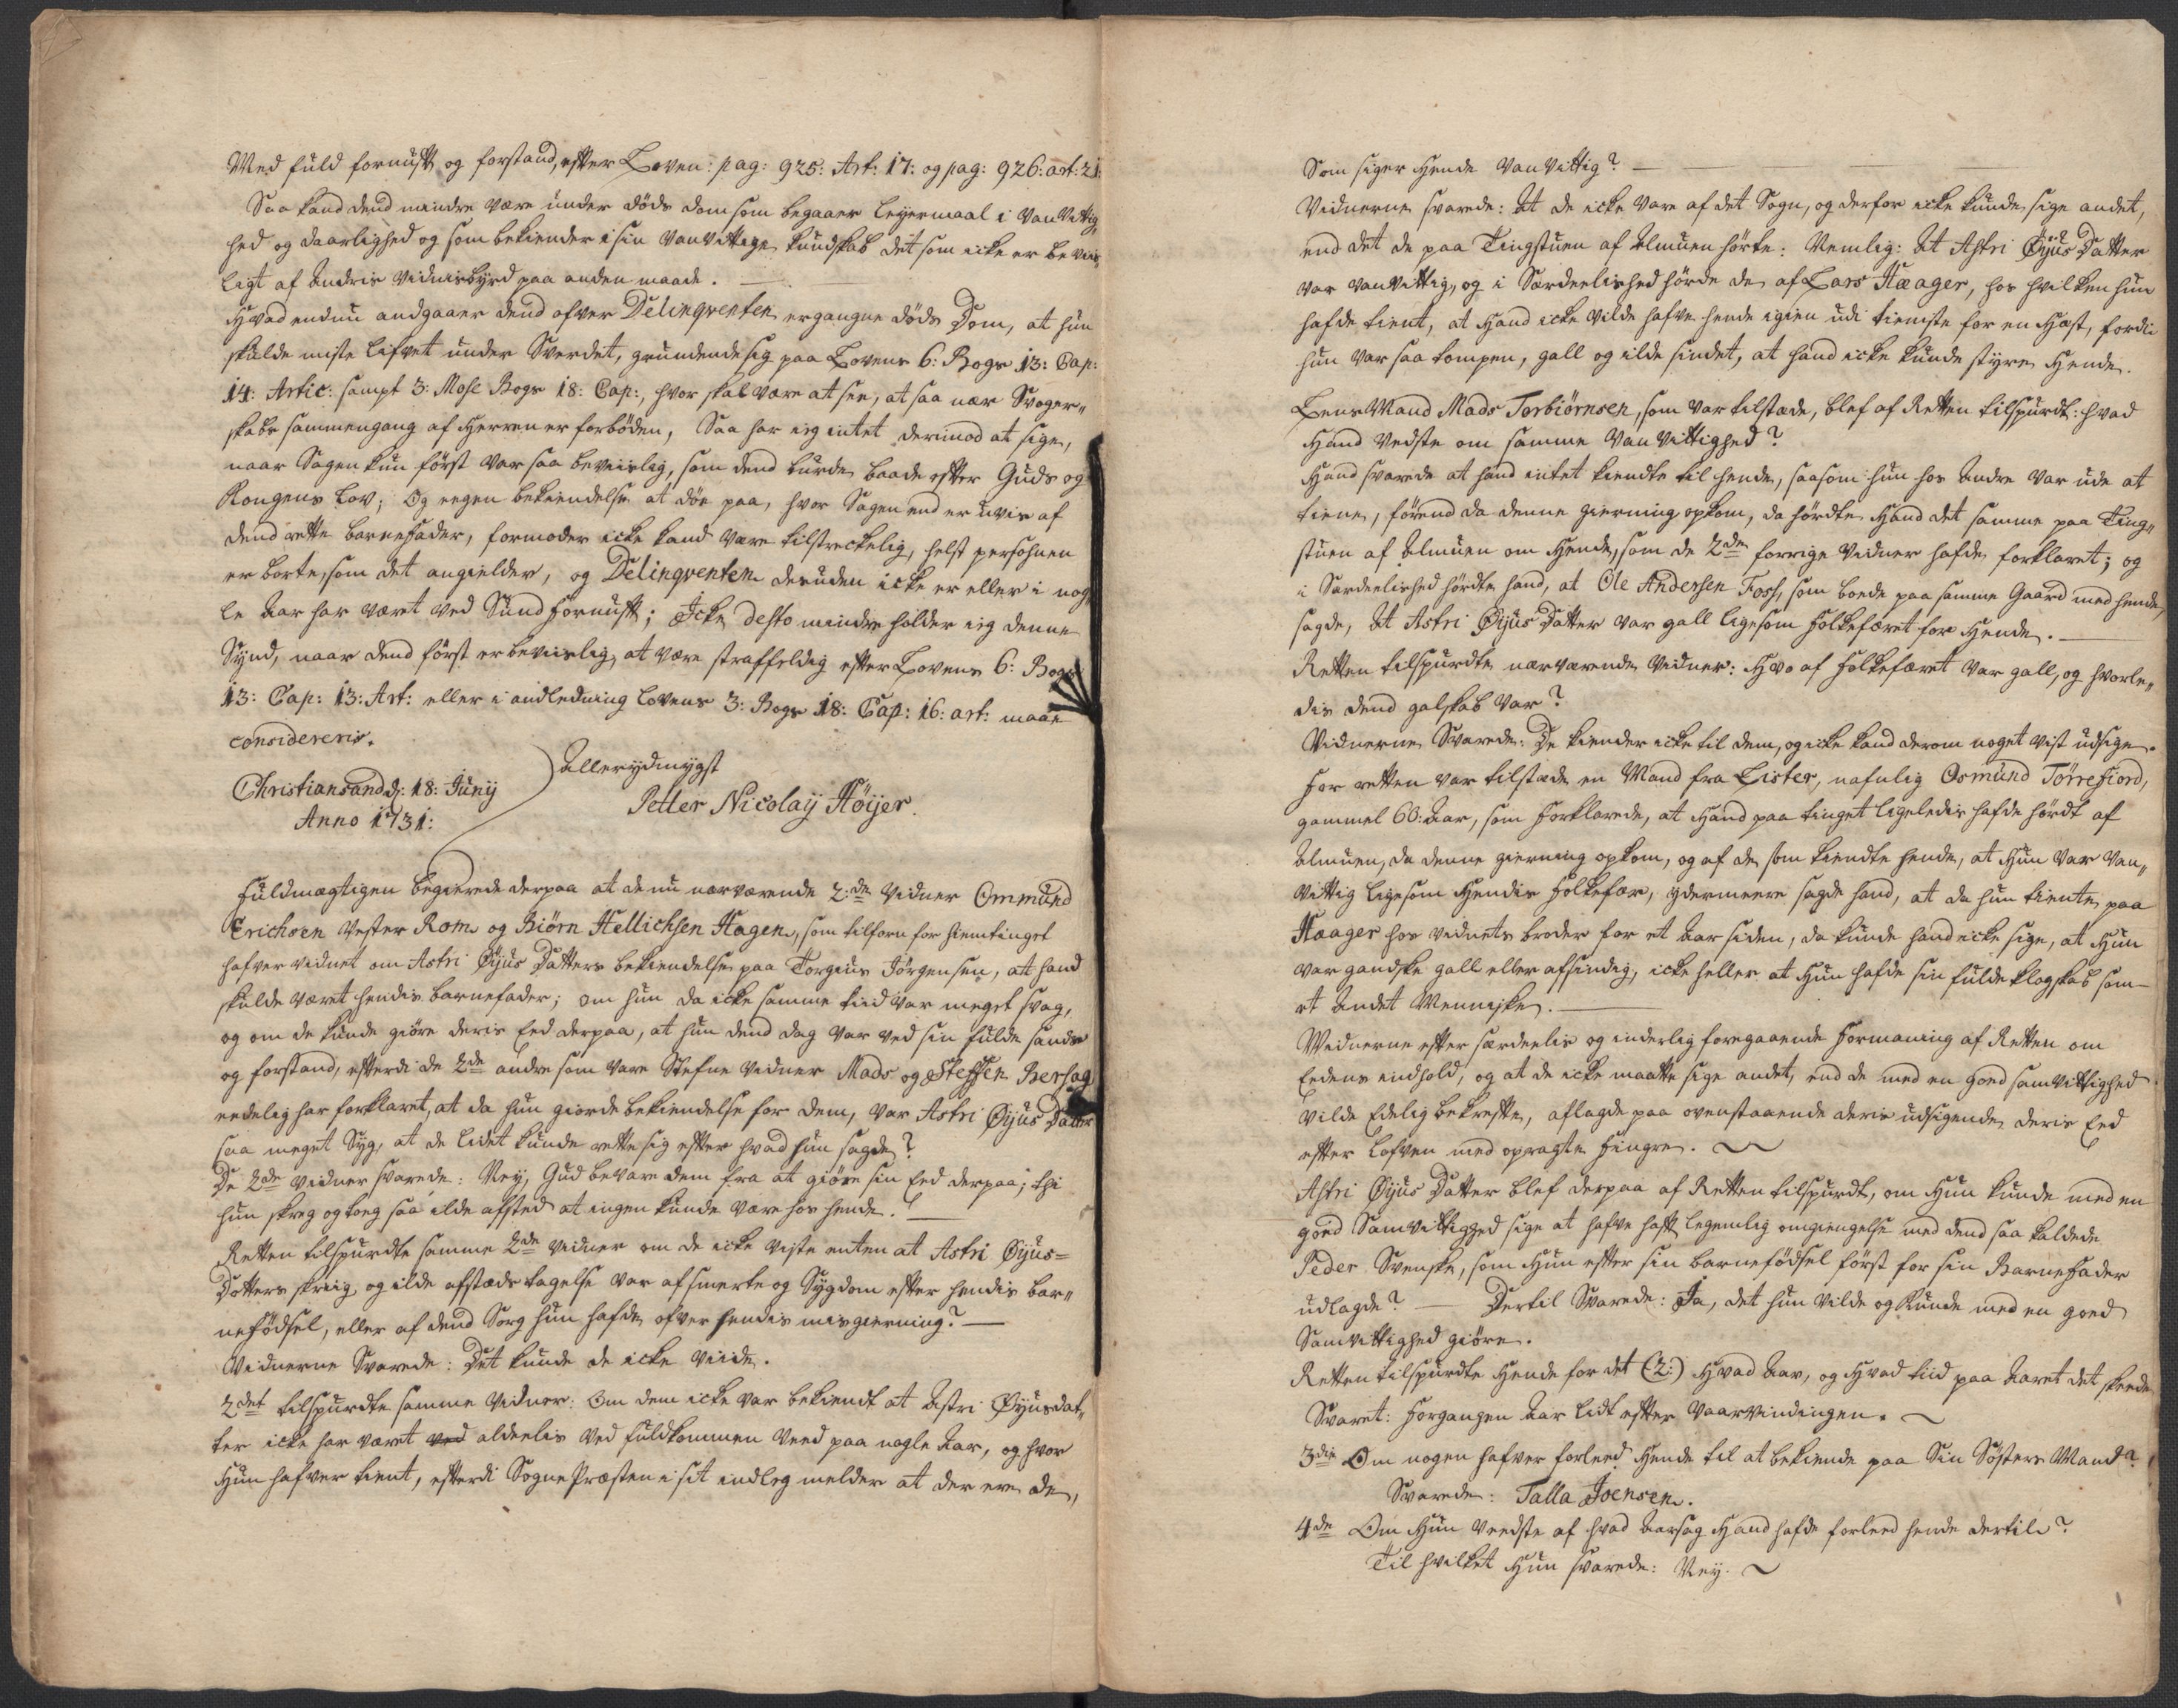 Med fuld fornuft og forstand, efter Loven: pag: 925: Art: 17: og pag: 926: art: 21:
Saa kand dend mindre være under døds dom som begaaer leyermaal i vanvittig„
hed og daarlighed og som bekiender i sin vanvittige kundskab det som icke er beviis„
ligt af andris vidnisbyrd paa anden maade. —
Hvad endnu andgaaer dend ofver Delinqventen ergangne døds Dom, at hun
skulde miste lifvet under Sverdet, grundende sig paa Lovens 6: Bogs 13: Cap:
14: Artic: sampt 3: Mose Bogs 18: Cap:, hvor skal være at see, at saa nær Svoger„
skabs sammengang af Herren er forböden, Saa har ieg intet derimod at sige,
naar Sagen kun först var saa beviislig, som dend burde baade efter Guds og
Kongens lov; Og eegen bekiendelse at döe paa, hvor Sagen end er uvis af
dend rette barnefader, formoder icke kand være tilstreckelig, helst persohnen
er borte, som det angielder, og Delinqventen desuden icke er eller i nog„
le Aar har været ved Sund fornuft; Icke desto mindre holder ieg denne
Synd, naar dend först er beviislig, at være straffeldig efter Lovens 6: Bogs
13: Cap: 13: Art: eller i andledning lovens 3: Bogs 18: Cap: 16: art: maae
considereris.
Allerydmygst
Christiansand d: 18: Junij
Petter Nicolaij Höijer.
Anno 1731:
Fuldmægtigen begierede derpaa at de nu nærværende 2:de vidner Ommund
Erichsen Vester Rom og Biörn Hellichsen Hagen, som tilforn for hiemtinget
hafver vidnet om Astri Öijus Datters bekiendelse paa Torgius Jörgensen, at hand
skulde været hendis barnefader; om hun da icke samme tiid var meget svag,
og om de kunde giöre deris Eed derpaa, at hun dend dag var ved sin fulde sandse
og forstand, efterdi de 2de andre som vare Stefne vidner Mads og Steffen Bersag
eedelig har forklaret, at da hun giorde bekiendelse for dem, var Astri Öijus Datter
saa meget Syg, at de lidet kunde rette sig efter hvad hun sagde?
De 2de vidner svarede: Ney, Gud bevare dem fra at giöre sin Eed derpaa; thi
hun skreg og toeg saa ilde afsted at ingen kunde være hos hende. —
Retten tilspurdte samme 2de vidner om de icke viste enten at Astri Öijus=
Dotters skriig og ilde afsteds tagelse var af smerte og Sygdom efter hendis bar„
nefödsel, eller af dend Sorg hun hafde ofver hendis misgierning? —
Vidnerne Svarede: Det kunde de icke viide.
2det tilspurdte samme vidner: Om dem icke var bekiendt at Astri Öyusdat„
ter icke har været ved aldeelis ved fuldkommen Veed paa nogle Aar, og hvor
Hun hafver tient, efterdi Sogne Præsten i sit indleg melder at der ere de,
Som siger Hende vanvittig? —
Vidnerne svarede: At de icke vare af det Sogn, og derfor icke kunde sige andet,
end det de paa Tingstuen af Almuen hörte: Nemlig: At Astri Öijus Datter
var vanvittig, og i Særdeelished hörde de af Lars Hæager, hos hvilken hun
hafde tient, at Hand icke vilde hafve hende igien udi tieniste for en Hæst, fordi
hun var saa kompen, gall og ilde sindet, at hand icke kunde styre Hende.
LensMand Mads Torbiörnsen, som var tilstæde, blef af Retten tilspurdt: hvad
Hand vedste om samme vanvittighed?
Hand svarede at hand intet kiendte til hende, saasom hun hos Andre var ude at
tiene, förend da denne gierning opkom, da hördte Hand det samme paa Ting„
stuen af Almuen om Hende, som de 2de forrige vidner hafde forklaret; og
i Særdeelished hördte hand, at Ole Andersen Foss, som boede paa samme Gaard med hende,
sagde, At Astri Öijus Datter var gall ligesom Folkefæret for Hende. —
Retten tilspurdte nærværende vidner: Hvo af Folkefæret var gall, og hvorle„
dis dend galskab var?
Vidnerne Svarede: De kiender icke til dem, og icke kand derom noget vist udsige.
For retten var tilstæde en Mand fra Lister, nafnlig Osmund Törrefiord,
gammel 60: Aar, som Forklarede, at Hand paa tinget ligeledis hafde hördt af
Almuen, da denne gierning opkom, og af de som kiendte hende, at Hun var van„
vittig ligesom Hendis Folkefær, ydermeere sagde hand, at da hun tiente paa
Hæager hos vidnets broder for et Aar siden, da kunde hand icke sige, at Hun
var gandske gall eller afsindig, icke heller at Hun hafde sin fulde klogskab som
et Andet Menniske. —
Vidnerne efter særdeelis og inderlig foregaaende Formaning af Retten om
Eedens indhold, og at de icke maatte sige andet, end de med en goed samvittighed
vilde Edelig bekrefte, aflagde paa ovenstaaende deris udsigende deris Eed
efter lofven med opragte Fingre. ~
Astri Öijus Datter blef derpaa af Retten tilspurdt, om Hun kunde med en
goed Samvittighed sige at hafve haft legemlig omgiengelse med dend saa kaldede
Peder Svenske, som Hun efter sin barnefödsel först for sin Barnefader
udlagde? — Dertil Svarede: Ja, det hun vilde og kunde med en goed
Samvittighed giöre.
Retten tilspurdte Hende for det (2:) Hvad Aar, og Hvad tiid paa Aaret det skeede
Svaret: Forgangen Aar lidt efter vaarvindingen. ~
3die Om nogen hafver forleed Hende til at bekiende paa Sin Søsters Mand?
Svarede: Talla Joensen.
4de Om Hun veedste af hvad Aarsag Hand hafde forleed hende dertil?
Til hvilket Hun svarede: Ney. ~